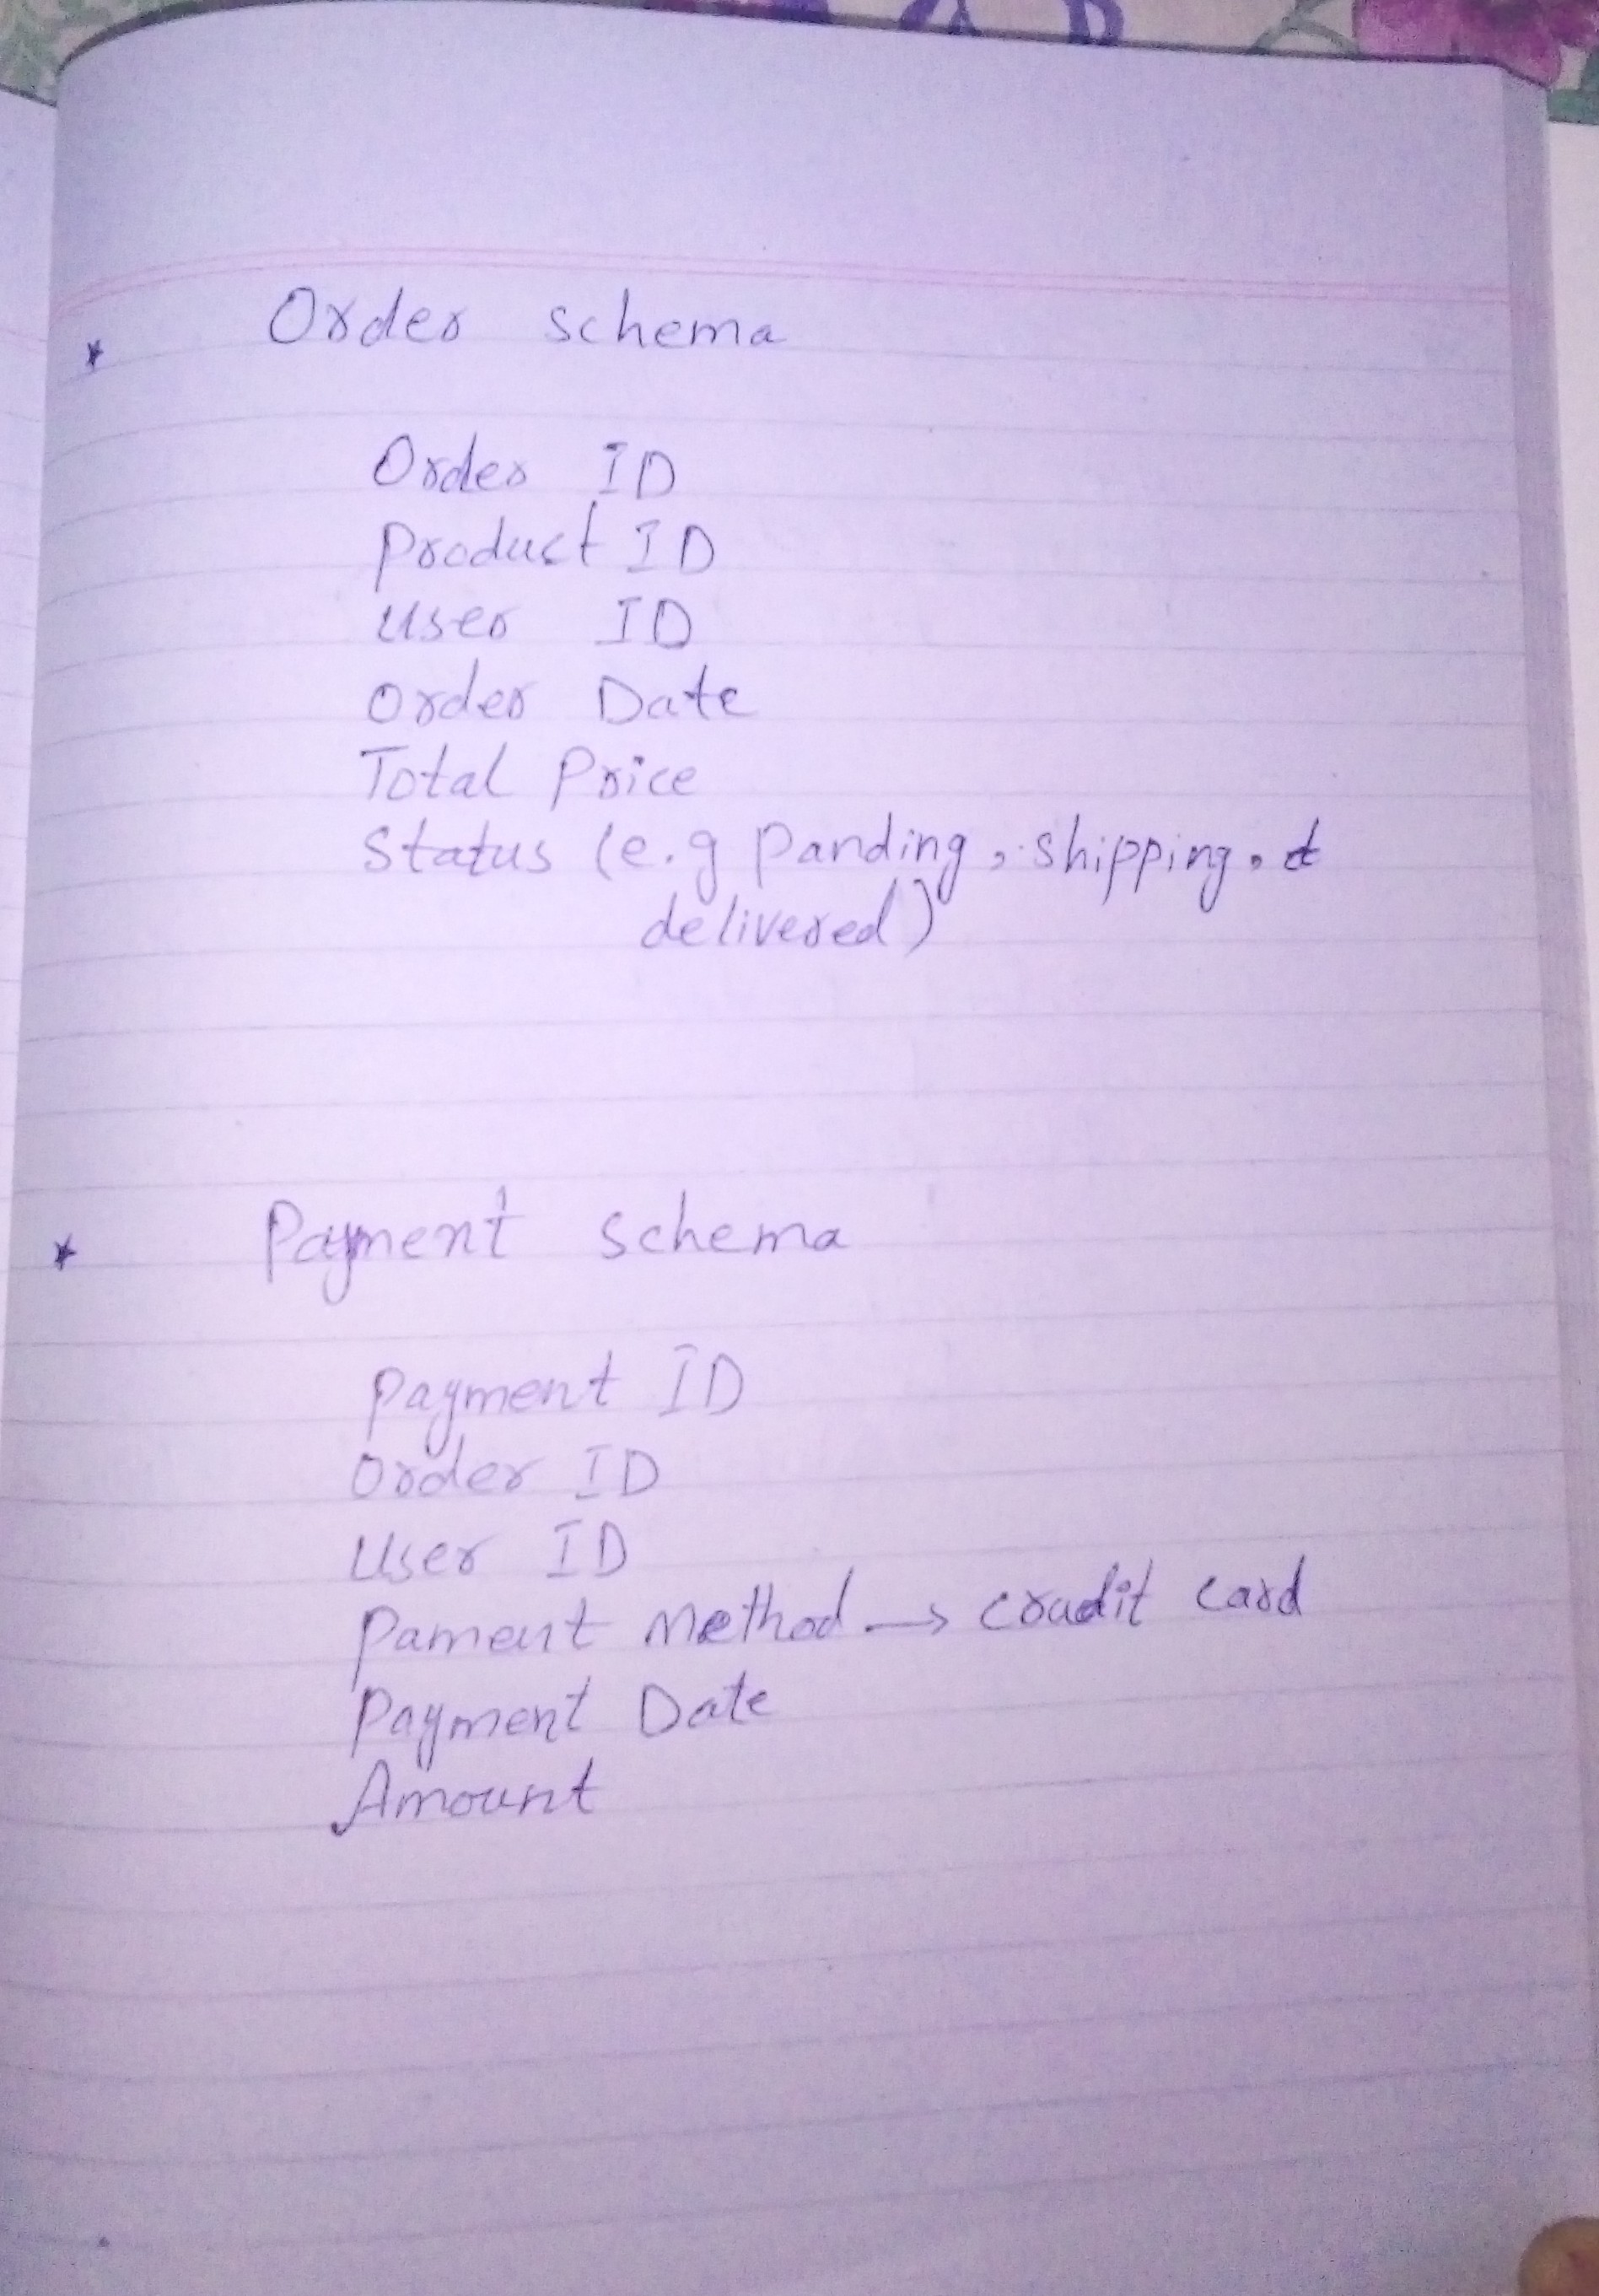 * Order schema
Order ID
Product ID
User ID
Order Date
Total Price
Status (e.g Panding, shipping, d
delivered)
* Payment schema
Payment ID
Order ID
User ID
Pament Method → cradit card
Payment Date
Amount